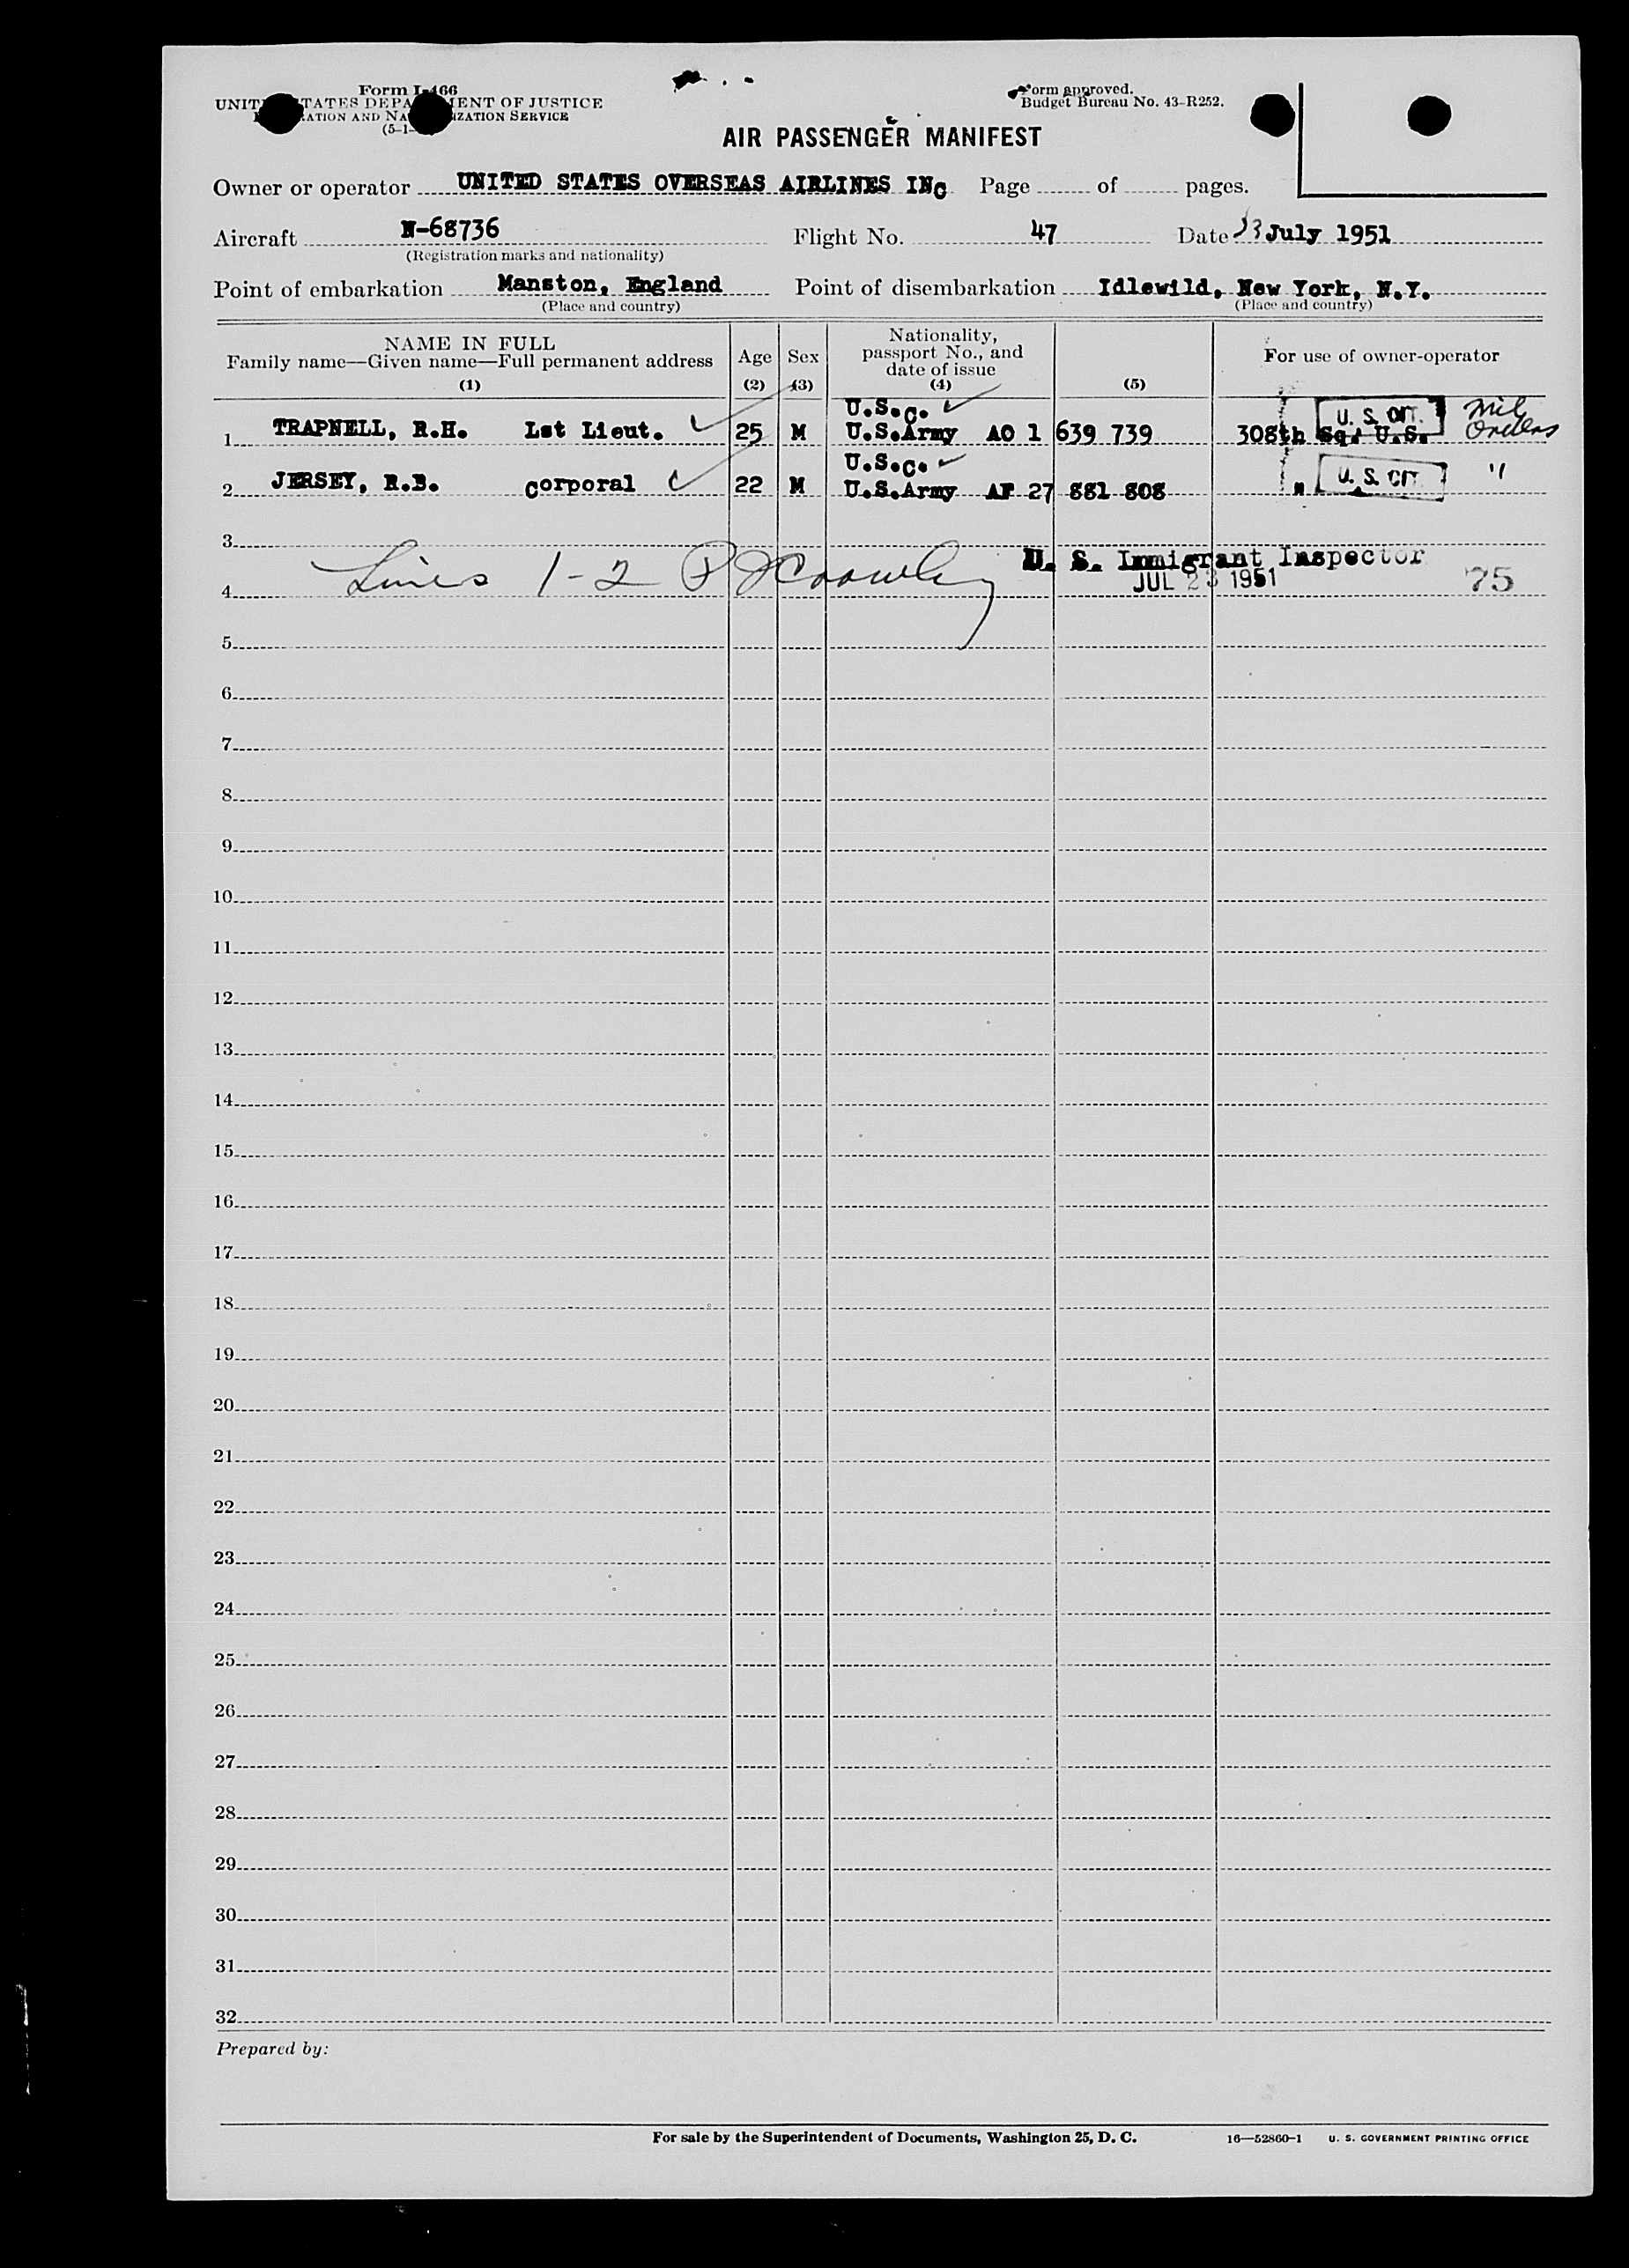 Form I-466
UNITED STATES DEPARTMENT OF JUSTICE
AND NATURALIZATION SERVICE
(5-1-
Form approved.
Budget Bureau No. 43-R252.
AIR PASSENGER MANIFEST
Owner or operator UNITED STATES OVERSEAS AIRLINES INC Page of pages.
Aircraft N-68736 Flight No. 47 Date 23 July 1951
(Registration marks and nationality)
Point of embarkation Manston, England Point of disembarkation Idlewild, New York, N.Y.
(Place and country) (Place and country)
NAME IN FULL
Family name—Given name—Full permanent address
(1)
Age
(2)
Sex
(3)
Nationality,
passport No., and
date of issue
(4)
(5)
For use of owner-operator
U.S.C. U. S. CIT. Mil
1 TRAPNELL, R.H. Lst Lieut. 25 M U.S.Army AO 1 639 739 308th Sq. U.S. Orders
U.S.C.
2 JERSEY, R.B. Corporal 22 M U.S.Army AF 27 881 808 " U. S. CIT "
3
Lines 1-2 P J Crowley U. S. Immigrant Inspector
4 JUL 23 1951 75
5
6
7
8
9
10
11
12
13
14
15
16
17
18
19
20
21
22
23
24
25
26
27
28
29
30
31
32
Prepared by:
For sale by the Superintendent of Documents, Washington 25, D. C. 16—52860-1 U. S. GOVERNMENT PRINTING OFFICE